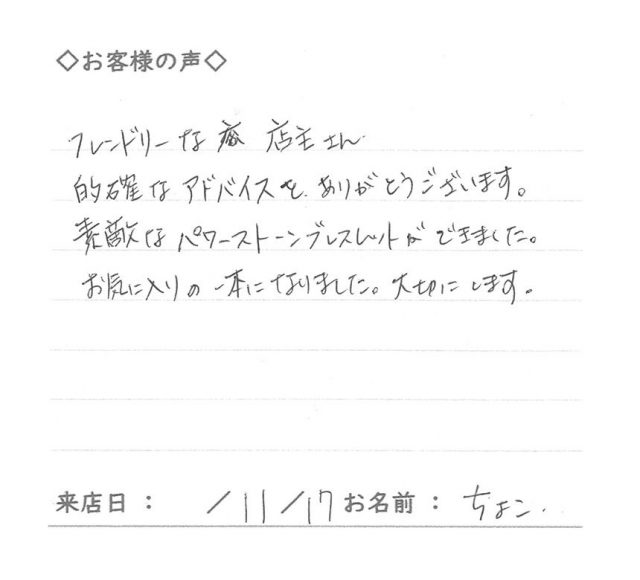 ◇お客様の声◇
フレンドリーな 店主さん
的確なアドバイスを、ありがとうございます。
素敵なパワーストーンブレスレットができました。
お気に入りの一本になりました。大切にします。
来店日： /11/17 お名前： ちょこ.